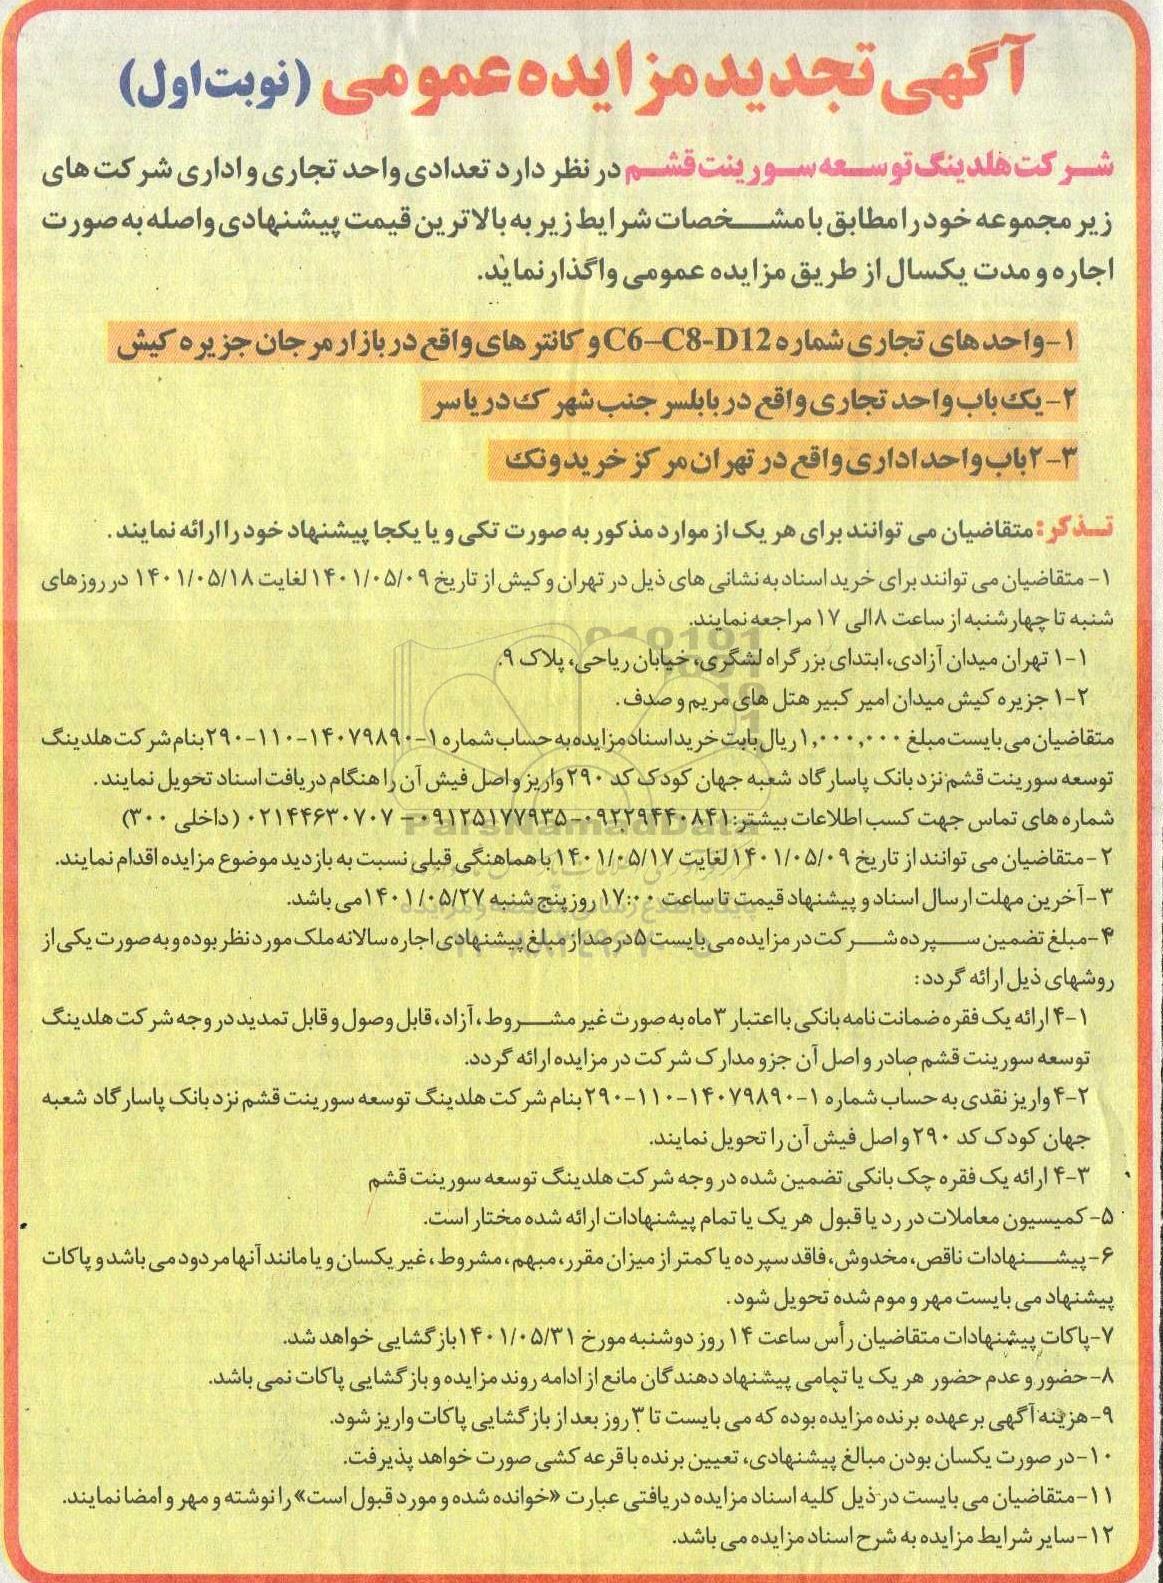 آگهی تجدید مزایده عمومی (نوبت اول)
شرکت هلدینگ توسعه سورینت قشم در نظر دارد تعدادی واحد تجاری و اداری شرکت های
زیر مجموعه خود را مطابق با مشخصات شرایط زیر به بالاترین قیمت پیشنهادی واصله به صورت
اجاره و مدت یکسال از طریق مزایده عمومی واگذار نماید.
۱- واحدهای تجاری شماره C6–C8-D12 و کانترهای واقع در بازار مرجان جزیره کیش
۲- یک باب واحد تجاری واقع در بابلسر جنب شهرک دریاسر
۳- ۲ باب واحد اداری واقع در تهران مرکز خرید ونک
تذکر: متقاضیان می توانند برای هر یک از موارد مذکور به صورت تکی و یا یکجا پیشنهاد خود را ارائه نمایند.
۱- متقاضیان می توانند برای خرید اسناد به نشانی های ذیل در تهران و کیش از تاریخ ۱۴۰۱/۰۵/۰۹ لغایت ۱۴۰۱/۰۵/۱۸ در روزهای
شنبه تا چهارشنبه از ساعت ۸ الی ۱۷ مراجعه نمایند.
۱-۱ تهران میدان آزادی، ابتدای بزرگراه لشگری، خیابان ریاحی، پلاک ۹.
۱-۲ جزیره کیش میدان امیر کبیر هتل های مریم و صدف.
متقاضیان می بایست مبلغ ۱,۰۰۰,۰۰۰ ریال بابت خرید اسناد مزایده به حساب شماره ۱-۱۴۰۷۹۸۹۰-۱۱۰-۲۹۰ بنام شرکت هلدینگ
توسعه سورینت قشم نزد بانک پاسارگاد شعبه جهان کودک کد ۲۹۰ واریز و اصل فیش آن را هنگام دریافت اسناد تحویل نمایند.
شماره های تماس جهت کسب اطلاعات بیشتر: ۰۹۲۲۹۴۴۰۸۴۱-۰۹۱۲۵۱۷۷۹۳۵-۰۲۱۴۴۶۳۰۷۰۷ (داخلی ۳۰۰)
ParsNamadData
۲- متقاضیان می توانند از تاریخ ۱۴۰۱/۰۵/۰۹ لغایت ۱۴۰۱/۰۵/۱۷ با هماهنگی قبلی نسبت به بازدید موضوع مزایده اقدام نمایند.
۳- آخرین مهلت ارسال اسناد و پیشنهاد قیمت تا ساعت ۱۷:۰۰ روز پنج شنبه ۱۴۰۱/۰۵/۲۷ می باشد.
۴- مبلغ تضمین سپرده شرکت در مزایده می بایست ۵ درصد از مبلغ پیشنهادی اجاره سالانه ملک مورد نظر بوده و به صورت یکی از
روشهای ذیل ارائه گردد:
۴-۱ ارائه یک فقره ضمانت نامه بانکی با اعتبار ۳ ماه به صورت غیر مشروط، آزاد، قابل وصول و قابل تمدید در وجه شرکت هلدینگ
توسعه سورینت قشم صادر و اصل آن جزو مدارک شرکت در مزایده ارائه گردد.
۴-۲ واریز نقدی به حساب شماره ۱-۱۴۰۷۹۸۹۰-۱۱۰-۲۹۰ بنام شرکت هلدینگ توسعه سورینت قشم نزد بانک پاسارگاد شعبه
جهان کودک کد ۲۹۰ و اصل فیش آن را تحویل نمایند.
۴-۳ ارائه یک فقره چک بانکی تضمین شده در وجه شرکت هلدینگ توسعه سورینت قشم
۵- کمیسیون معاملات در رد یا قبول هر یک یا تمام پیشنهادات ارائه شده مختار است.
۶- پیشنهادات ناقص، مخدوش، فاقد سپرده یا کمتر از میزان مقرر، مبهم، مشروط، غیر یکسان و یا مانند آنها مردود می باشد و پاکات
پیشنهاد می بایست مهر و موم شده تحویل شود.
۷- پاکات پیشنهادات متقاضیان رأس ساعت ۱۴ روز دوشنبه مورخ ۱۴۰۱/۰۵/۳۱ بازگشایی خواهد شد.
۸- حضور و عدم حضور هر یک یا تمامی پیشنهاد دهندگان مانع از ادامه روند مزایده و بازگشایی پاکات نمی باشد.
۹- هزینه آگهی بر عهده برنده مزایده بوده که می بایست تا ۳ روز بعد از بازگشایی پاکات واریز شود.
۱۰- در صورت یکسان بودن مبالغ پیشنهادی، تعیین برنده با قرعه کشی صورت خواهد پذیرفت.
۱۱- متقاضیان می بایست در ذیل کلیه اسناد مزایده دریافتی عبارت «خوانده شده و مورد قبول است» را نوشته و مهر و امضا نمایند.
۱۲- سایر شرایط مزایده به شرح اسناد مزایده می باشد.